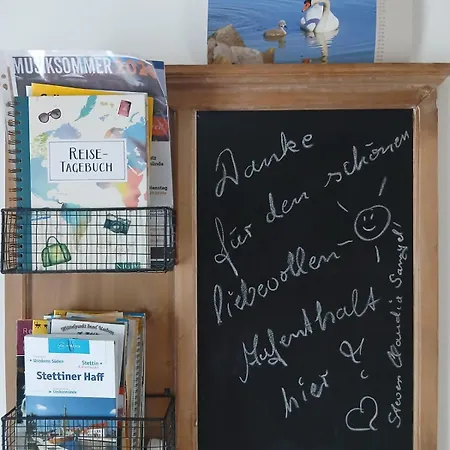 MUSIKSOMMER
REISE-
TAGEBUCH
Stettiner Haff
Danke
für den schönen
liebevollen
Aufenthalt
hier
Steven Claudia